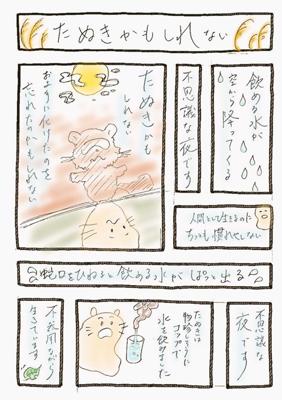 たぬきかもしれない
飲める水が
空から降ってくる
不思議な夜です
たぬきかも
しれない
おような化けたのを
忘れたのかもしれない
人間として生きるのに
ちっとも慣れやしない
蛇口をひねると飲める水がぱっと出る
不思議な
夜です
たぬきは
物珍しそうに
コップで
水を飲みました
不器用ながら
生きています